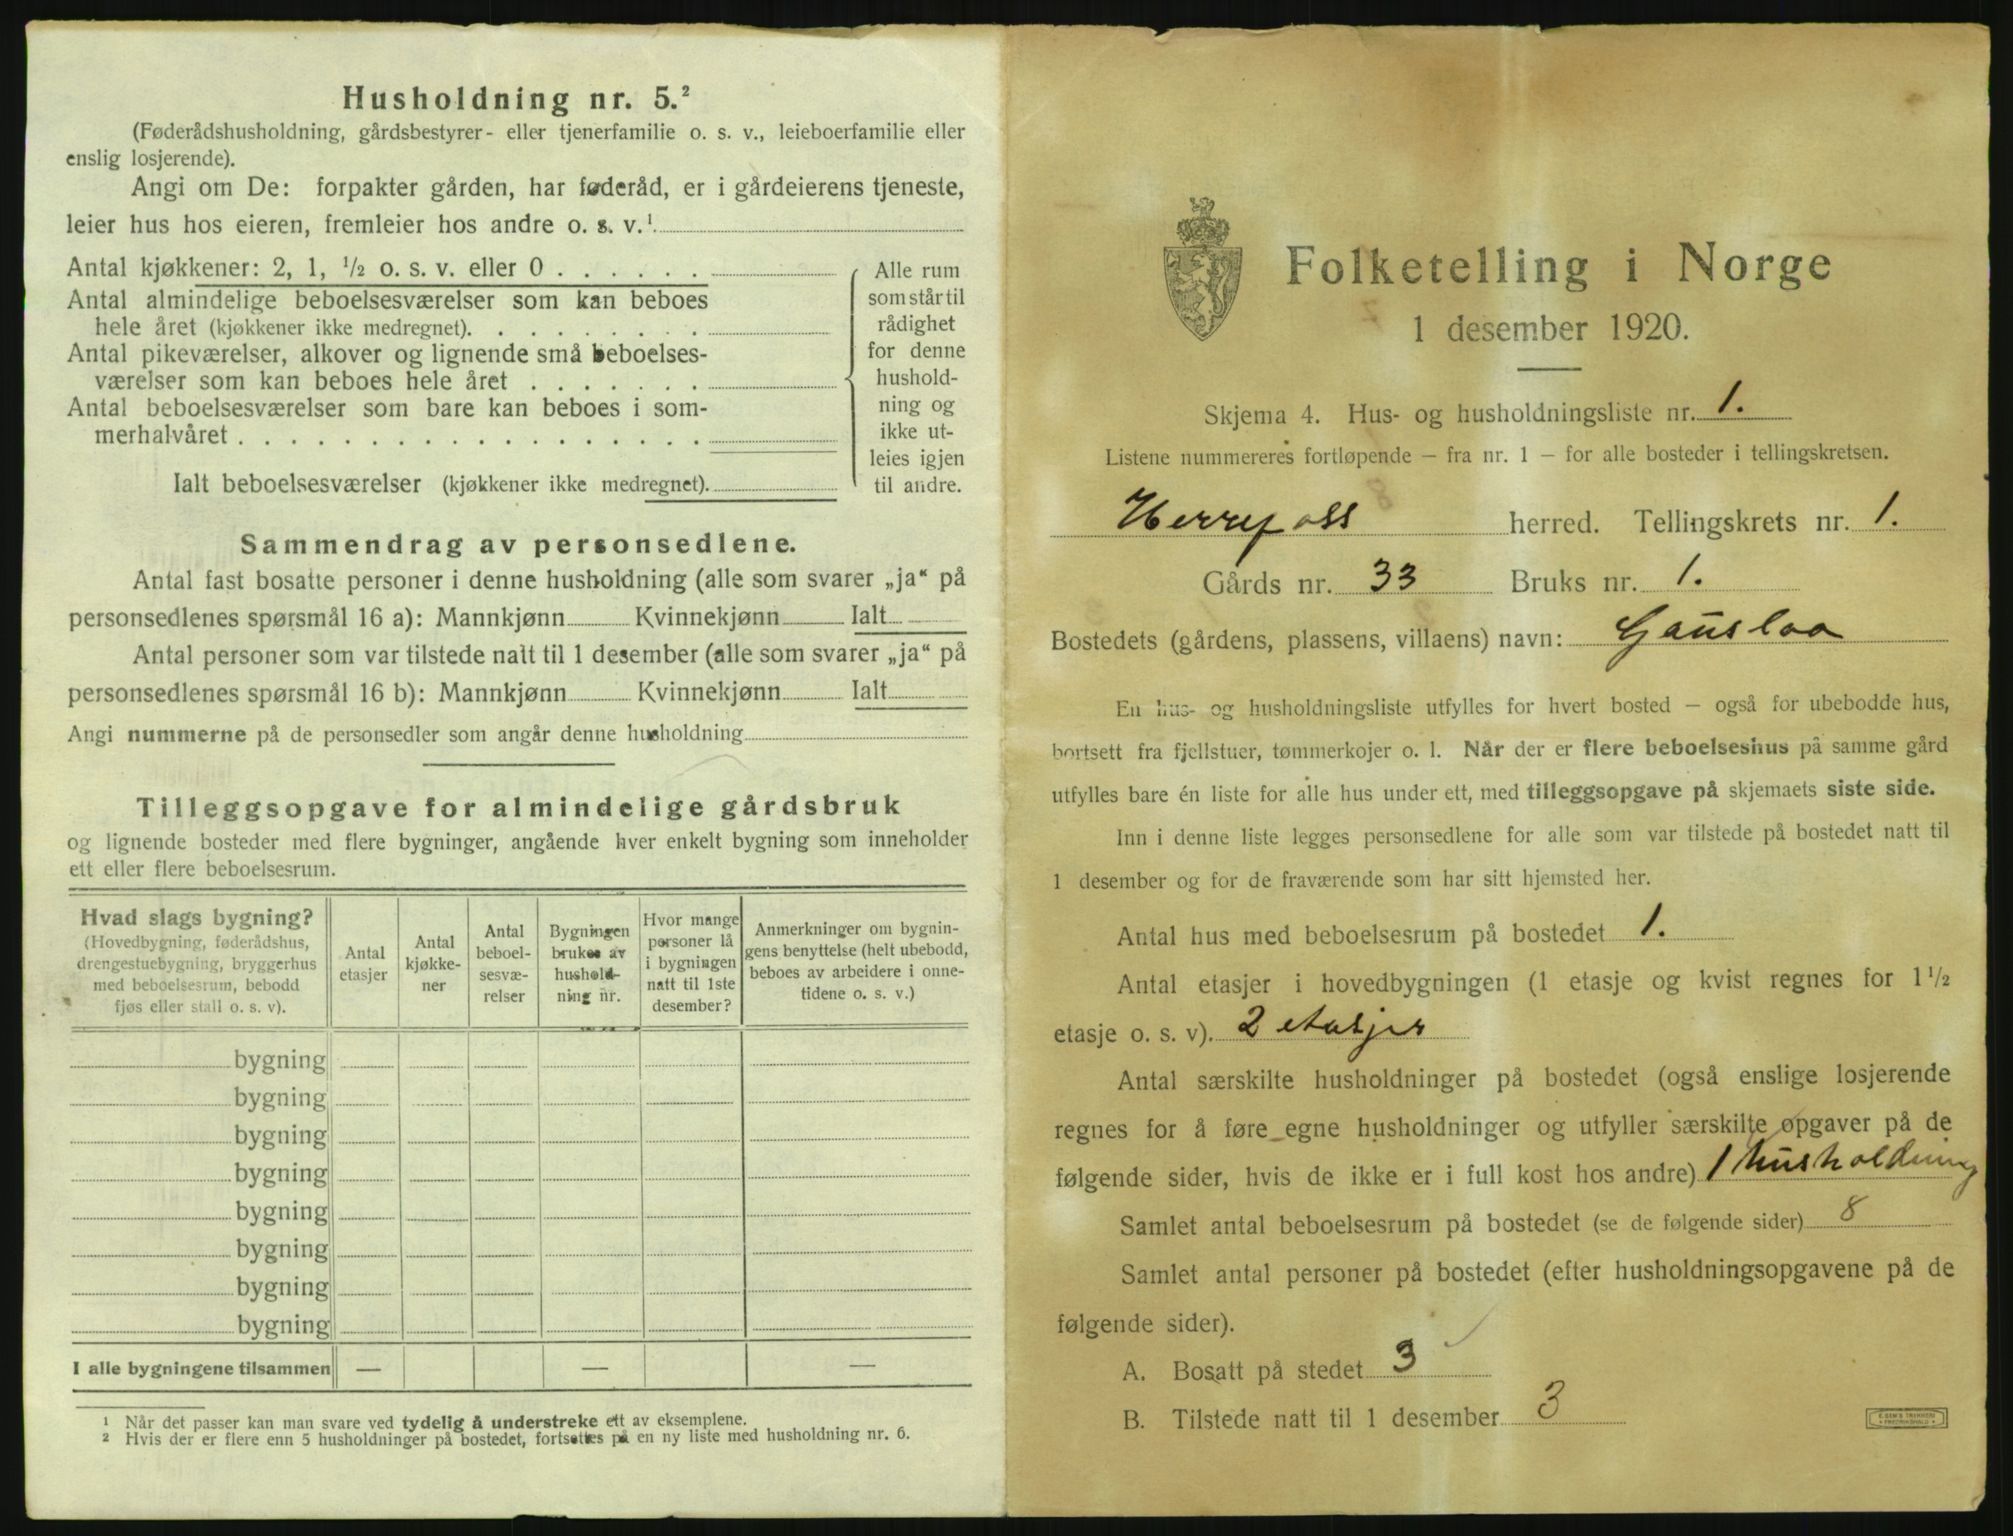 Husholdning nr. 5.²
(Føderådshusholdning, gårdsbestyrer- eller tjenerfamilie o. s. v., leieboerfamilie eller
enslig losjerende).
Angi om De: forpakter gården, har føderåd, er i gårdeierens tjeneste,
leier hus hos eieren, fremleier hos andre o. s. v.¹
Antal kjøkkener: 2, 1, ½ o. s. v. eller 0 . . . . . .
Antal almindelige beboelsesværelser som kan beboes
hele året (kjøkkener ikke medregnet). . . . . . . . .
Antal pikeværelser, alkover og lignende små beboelses-
værelser som kan beboes hele året . . . . . . .
Antal beboelsesværelser som bare kan beboes i som-
merhalvåret . . . . . . . . . . . . . . . . . .
Ialt beboelsesværelser (kjøkkener ikke medregnet).
Alle rum
som står til
rådighet
for denne
hushold-
ning og
ikke ut-
leies igjen
til andre.
Sammendrag av personsedlene.
Antal fast bosatte personer i denne husholdning (alle som svarer „ja“ på
personsedlenes spørsmål 16 a): Mannkjønn Kvinnekjønn Ialt
Antal personer som var tilstede natt til 1 desember (alle som svarer „ja“ på
personsedlenes spørsmål 16 b): Mannkjønn Kvinnekjønn Ialt
Angi nummerne på de personsedler som angår denne husholdning
Tilleggsopgave for almindelige gårdsbruk
og lignende bosteder med flere bygninger, angående hver enkelt bygning som inneholder
ett eller flere beboelsesrum.
Hvad slags bygning?
(Hovedbygning, føderådshus,
drengestuebygning, bryggerhus
med beboelsesrum, bebodd
fjøs eller stall o. s. v).
Antal
etasjer
Antal
kjøkke-
ner
Antal
beboel-
sesvæ-
relser
Bygningen
brukes av
hushold-
ning nr.
Hvor mange
personer lå
i bygningen
natt til 1ste
desember?
Anmerkninger om bygnin-
gens benyttelse (helt ubebodd,
beboes av arbeidere i onne-
tidene o. s. v.)
bygning
bygning
bygning
bygning
bygning
bygning
bygning
bygning
I alle bygningene tilsammen — — —
¹ Når det passer kan man svare ved tydelig å understreke ett av eksemplene.
² Hvis der er flere enn 5 husholdninger på bostedet, fortsettes på en ny liste med husholdning nr. 6.
Folketelling i Norge
1 desember 1920.
Skjema 4. Hus- og husholdningsliste nr. 1.
Listene nummereres fortløpende – fra nr. 1 – for alle bosteder i tellingskretsen.
Herrefoss herred. Tellingskrets nr. 1.
Gårds nr. 33 Bruks nr. 1.
Bostedets (gårdens, plassens, villaens) navn: Gauslaa
En hus- og husholdningsliste utfylles for hvert bosted – også for ubebodde hus,
bortsett fra fjellstuer, tømmerkojer o. l. Når der er flere beboelseshus på samme gård
utfylles bare én liste for alle hus under ett, med tilleggsopgave på skjemaets siste side.
Inn i denne liste legges personsedlene for alle som var tilstede på bostedet natt til
1 desember og for de fraværende som har sitt hjemsted her.
Antal hus med beboelsesrum på bostedet 1.
Antal etasjer i hovedbygningen (1 etasje og kvist regnes for 1½
etasje o. s. v). 2 etasjer
Antal særskilte husholdninger på bostedet (også enslige losjerende
regnes for å føre egne husholdninger og utfyller særskilte opgaver på de
følgende sider, hvis de ikke er i full kost hos andre) 1 husholdning
Samlet antal beboelsesrum på bostedet (se de følgende sider) 8
Samlet antal personer på bostedet (efter husholdningsopgavene på de
følgende sider).
A. Bosatt på stedet 3
B. Tilstede natt til 1 desember 3
E. SEM'S TRYKKERI
FREDRIKSHALD